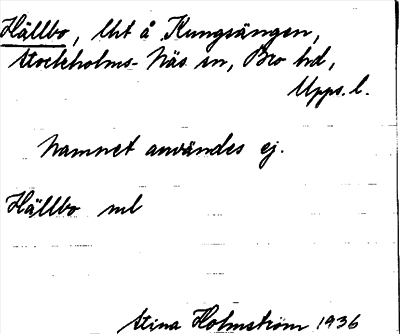 Hällbo, lht å Kungsängen,
Stockholms-Näs sn, Bro hd,
Upps. l.
Namnet användes ej.
Hällbo ml
Stina Holmström 1936